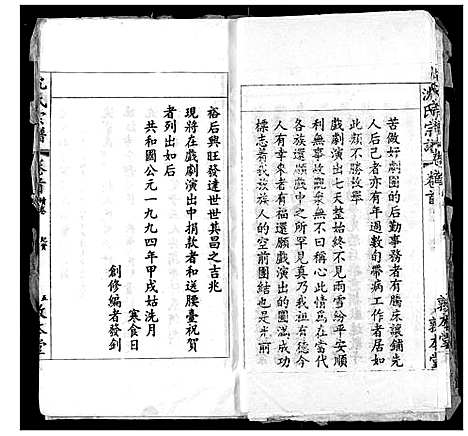 苦做好劇團的后勤事務者有騰床讓鋪先
人后己者亦有年過數旬帶病工作者居如
此類不勝故舉
戲劇演出七天整始終不見雨雪紛平安順
利無事故觀衆無不曰稱心此情爲在當代
各族還願戲之所罕見真乃我族有史德今
人有幸來者有福還願戲演出的圓滿成功
標志着我族族人的空前團結也是先前
裕后興旺發達世世其昌之吉兆
現將在戲劇演出中捐款者和送腰臺祝賀
者列出如后
共和國公元一九九四年甲戌姑洗月
寒食日
創修編者發釗
氏宗譜
卷首
敦本堂